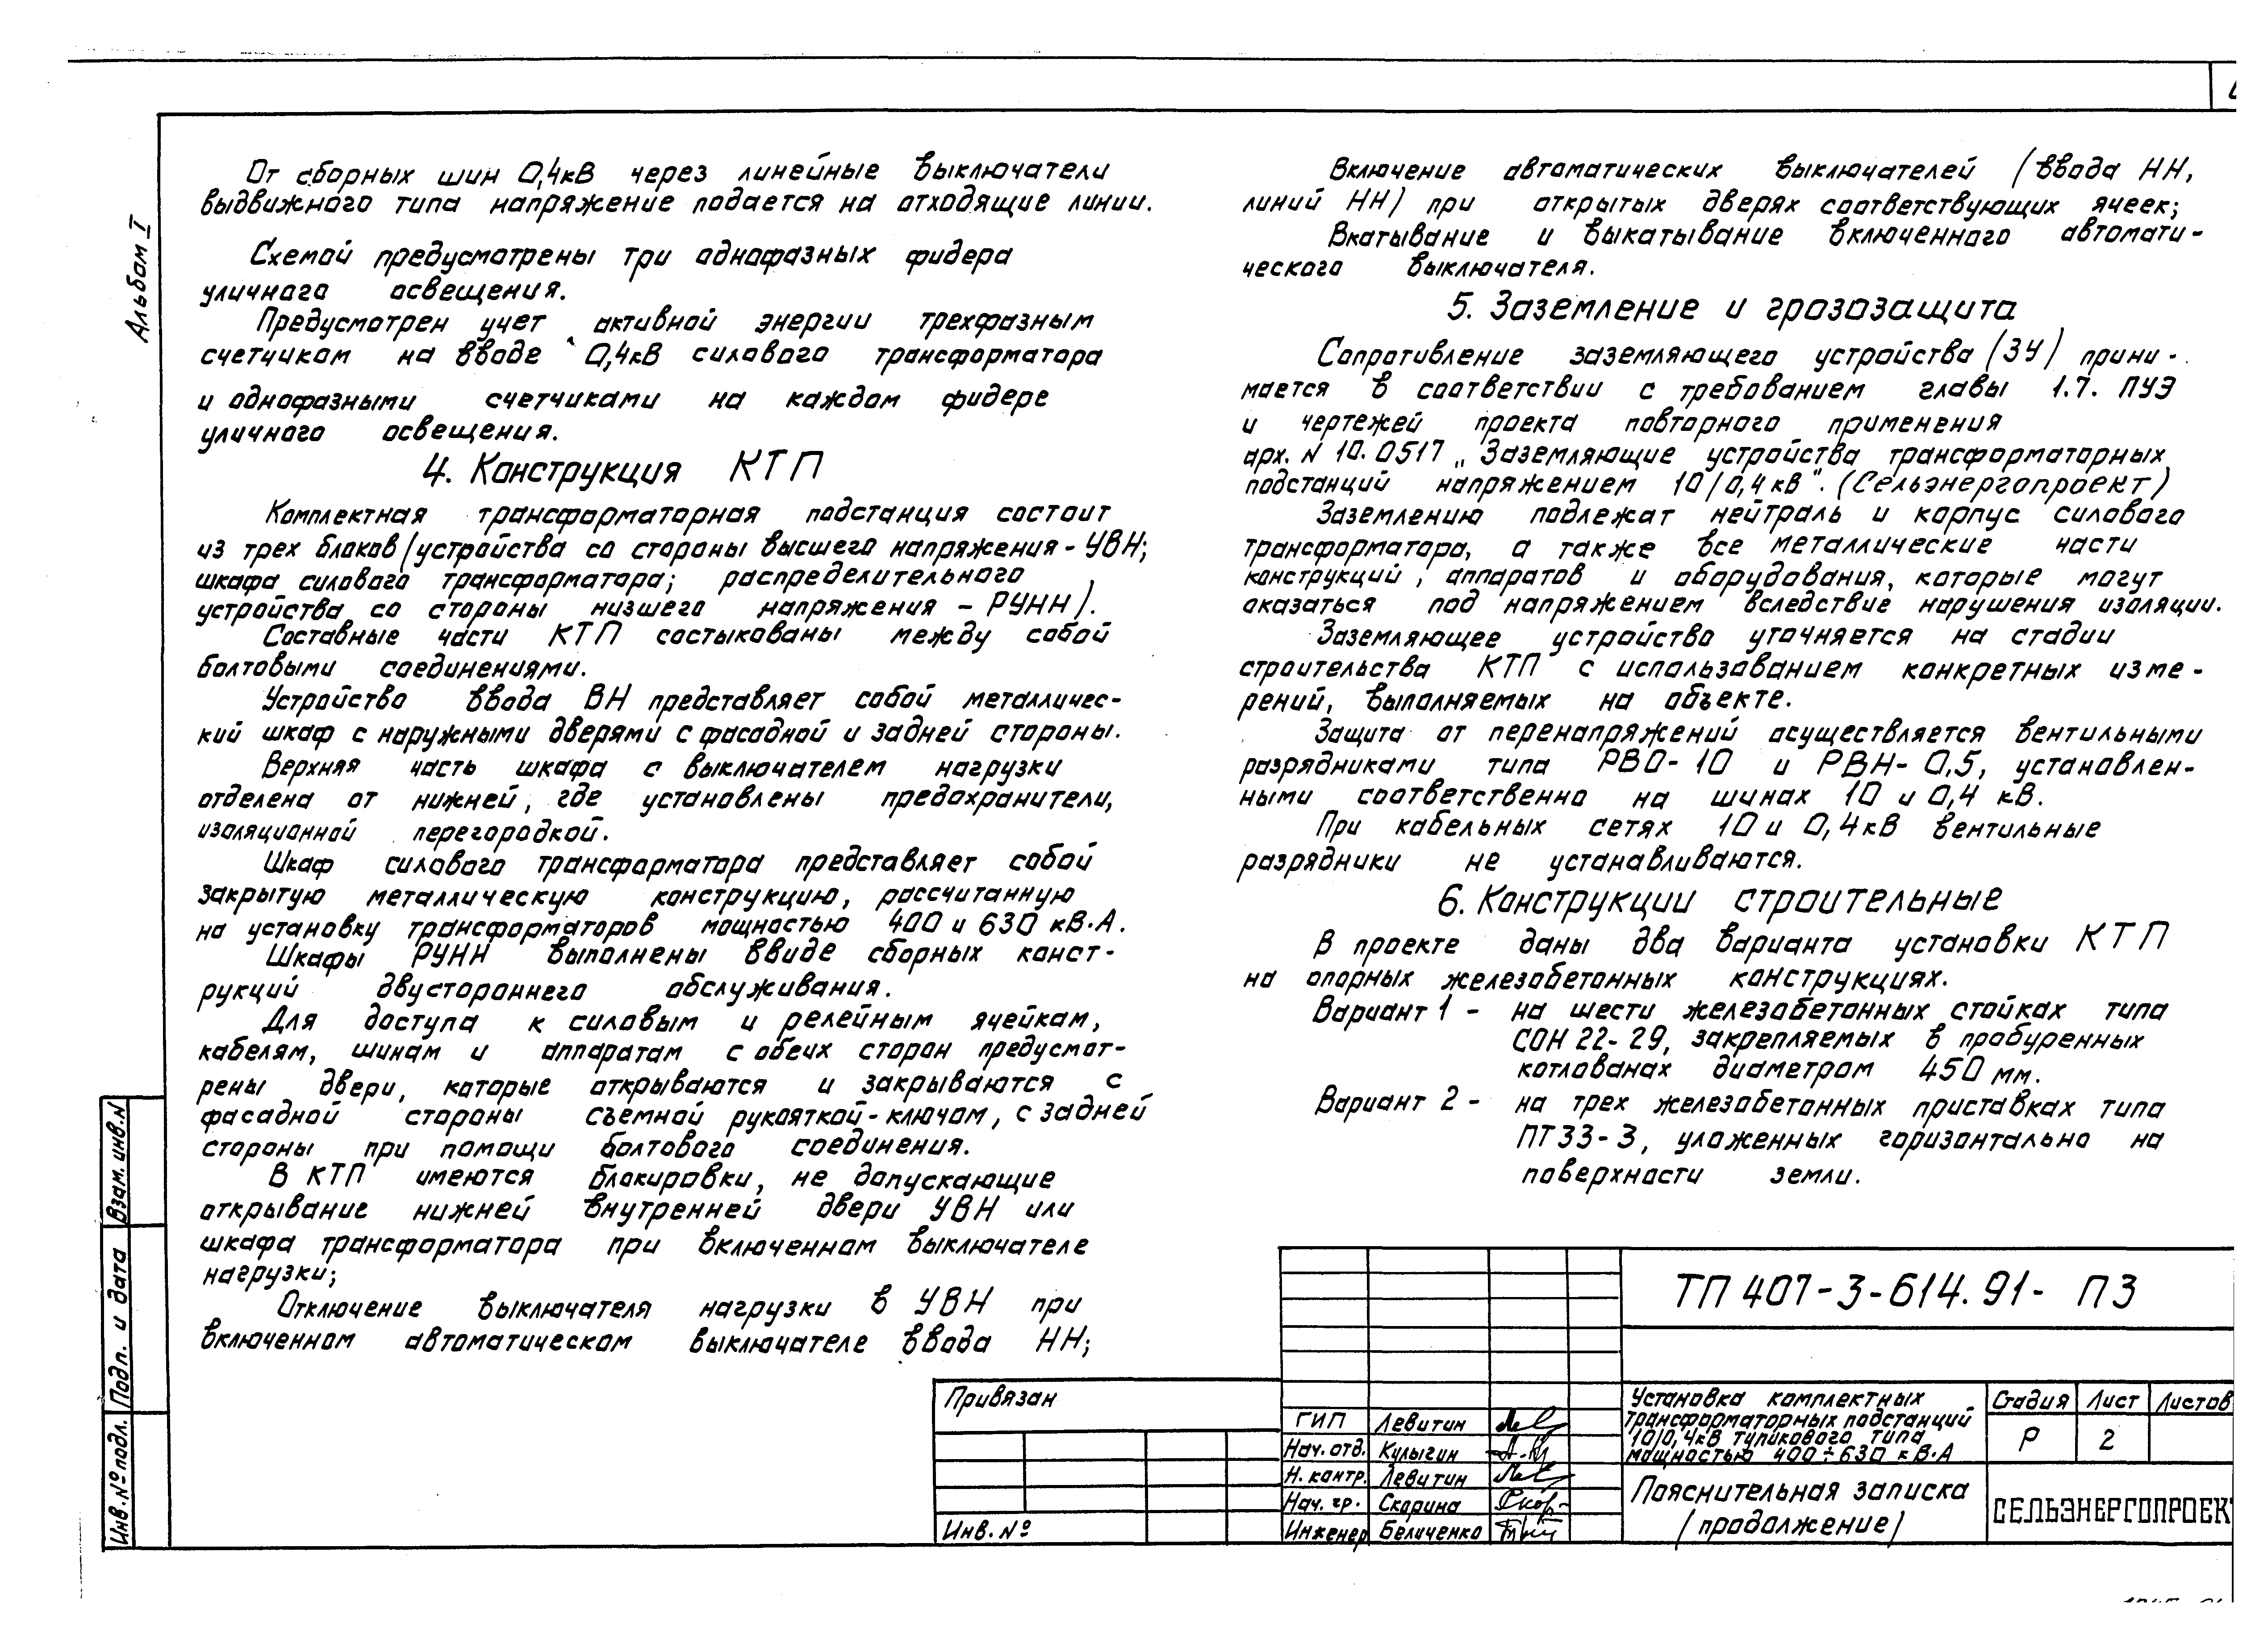 Альбом I
От сборных шин 0,4кВ через линейные выключатели
выдвижного типа напряжение подается на отходящие линии.
Схемой предусмотрены три однофазных фидера
уличного освещения.
Предусмотрен учет активной энергии трехфазным
счетчиком на вводе 0,4кВ силового трансформатора
и однофазными счетчиками на каждом фидере
уличного освещения.
4. Конструкция КТП
Комплектная трансформаторная подстанция состоит
из трех блоков (устройства со стороны высшего напряжения - УВН;
шкафа силового трансформатора; распределительного
устройства со стороны низшего напряжения - РУНН).
Составные части КТП состыкованы между собой
болтовыми соединениями.
Устройство ввода ВН представляет собой металличес-
кий шкаф с наружными дверями с фасадной и задней стороны.
Верхняя часть шкафа с выключателем нагрузки
отделена от нижней, где установлены предохранители,
изоляционной перегородкой.
Шкаф силового трансформатора представляет собой
закрытую металлическую конструкцию, рассчитанную
на установку трансформаторов мощностью 400 и 630 кВ.А.
Шкафы РУНН выполнены ввиде сборных конст-
рукций двустороннего обслуживания.
Для доступа к силовым и релейным ячейкам,
кабелям, шинам и аппаратам с обеих сторон предусмот-
рены двери, которые открываются и закрываются с
фасадной стороны съемной рукояткой-ключом, с задней
стороны при помощи болтового соединения.
В КТП имеются блокировки, не допускающие
открывание нижней внутренней двери УВН или
шкафа трансформатора при включенном выключателе
нагрузки;
Отключение выключателя нагрузки в УВН при
включенном автоматическом выключателе ввода НН;
Включение автоматических выключателей (ввода НН,
линий НН) при открытых дверях соответствующих ячеек;
Вкатывание и выкатывание включенного автомати-
ческого выключателя.
5. Заземление и грозозащита
Сопротивление заземляющего устройства (ЗУ) прини-
мается в соответствии с требованием главы 1.7. ПУЭ
и чертежей проекта повторного применения
арх. N 10.0517 „Заземляющие устройства трансформаторных
подстанций напряжением 10/0,4кВ". (Сельэнергопроект)
Заземлению подлежат нейтраль и корпус силового
трансформатора, а также все металлические части
конструкций, аппаратов и оборудования, которые могут
оказаться под напряжением вследствие нарушения изоляции.
Заземляющее устройство уточняется на стадии
строительства КТП с использованием конкретных изме-
рений, выполняемых на объекте.
Защита от перенапряжений осуществляется вентильными
разрядниками типа РВО-10 и РВН-0,5, установлен-
ными соответственно на шинах 10 и 0,4 кВ.
При кабельных сетях 10 и 0,4кВ вентильные
разрядники не устанавливаются.
6. Конструкции строительные
В проекте даны два варианта установки КТП
на опорных железобетонных конструкциях.
Вариант 1 - на шести железобетонных стойках типа
СОН 22-29, закрепляемых в пробуренных
котлованах диаметром 450 мм.
Вариант 2 - на трех железобетонных приставках типа
ПТ33-3, уложенных горизонтально на
поверхности земли.
Взам. инв. N
Подп. и дата
Инв. № подл.
Привязан
Инв. №
ГИП Левитин
Нач. отд. Кулыгин
Н. контр. Левитин
Нач. гр. Скорина
Инженер Беличенко
ТП 407-3-614.91- ПЗ
Установка комплектных
трансформаторных подстанций
10/0,4кВ тупикового типа
мощностью 400÷630 кВ.А
Стадия Лист Листов
Р 2
Пояснительная записка
(продолжение)
СЕЛЬЭНЕРГОПРОЕКТ